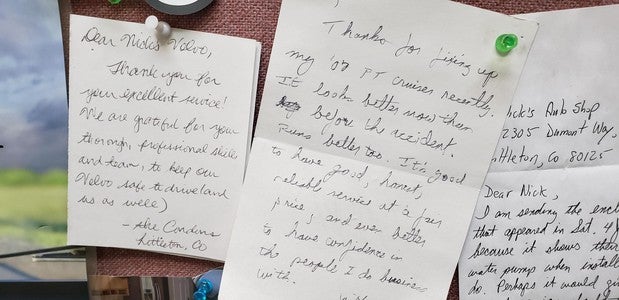 Dear Nick's Volvo,
Thank you for
your excellent service!
We are grateful for your
thorough, professional skills
and team, to keep our
Volvo safe to drive (and
us as well)
- The Condons
Littleton, CO
Thanks for fixing up
my '07 PT Cruiser recently.
It looks better now than
before the accident.
Runs better too. It's good
to have good, honest,
reliable service at a fair
price! and even better
to have confidence in
the people I do business
with.
Nick's Auto Shop
2305 Dumont Way,
ittleton, CO 80125
Dear Nick,
I am sending the encl
that appeared in Sat. 4
because it shows their
water pump when install
do. Perhaps it would gi